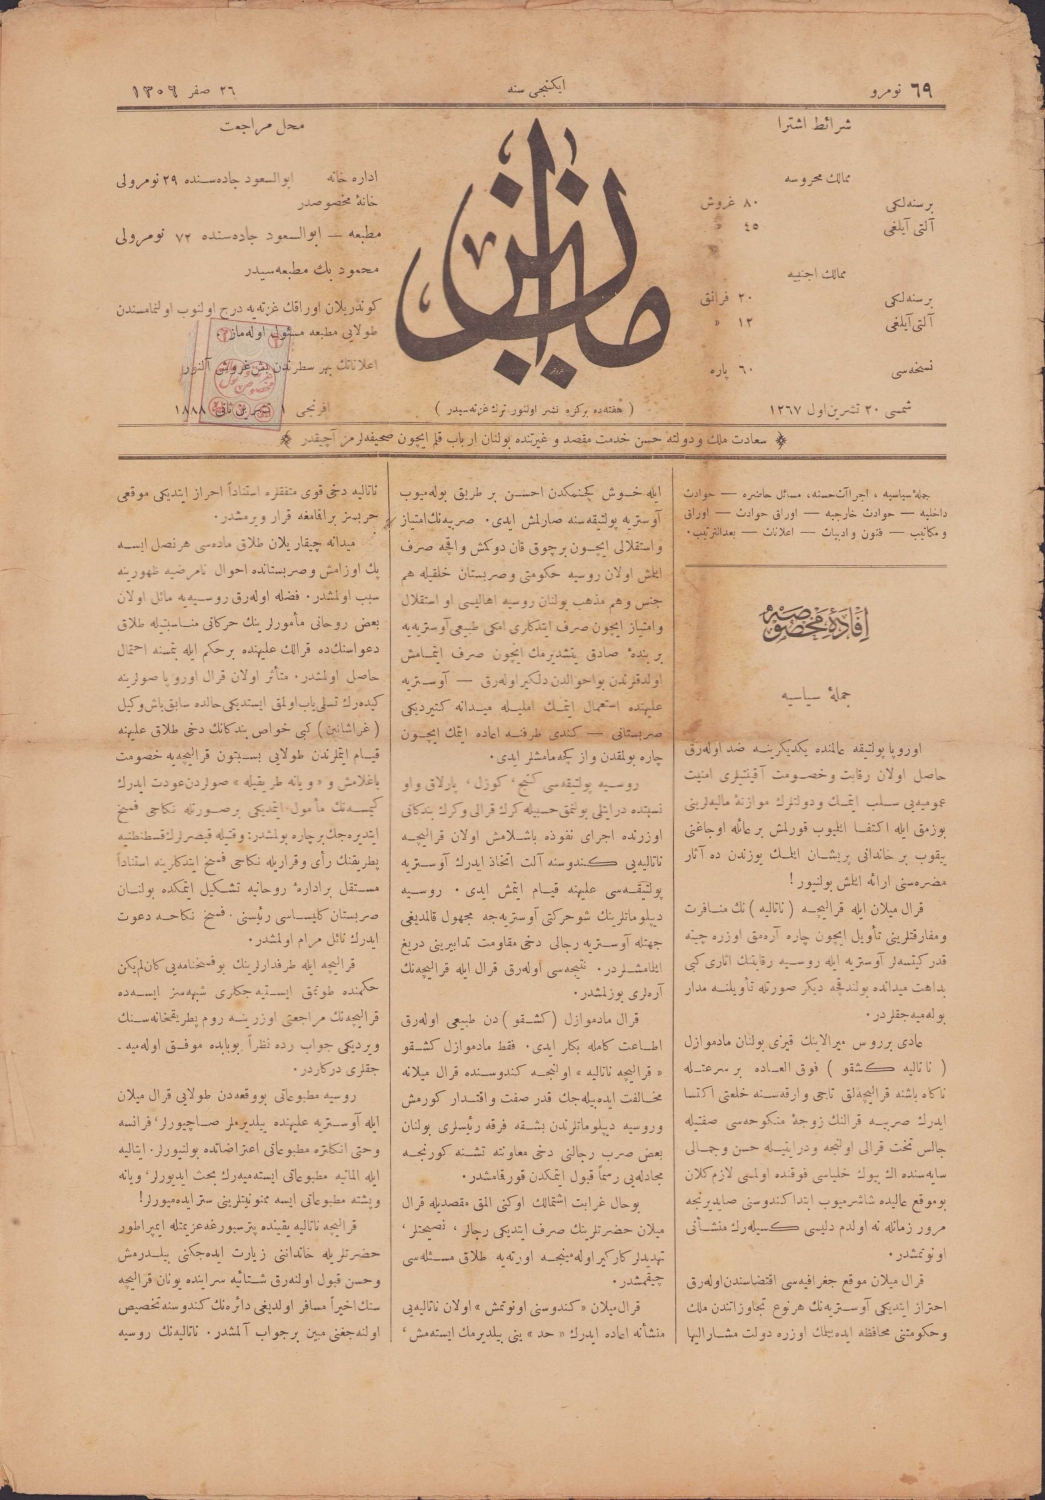 ٦٩ نومرو
ایکنجی سنه
٢٦ صفر ١٣٠٦
شرائط اشترا
ممالك محروسه
برسنه‌لکی ٨٠ غروش
آلتی آیلغی ٤٥ »
ممالك اجنبیه
برسنه‌لکی ٢٠ فرانق
آلتی آیلغی ١٢ »
نسخه‌سی ٦٠ پاره
شمسی ٢٠ تشرین اول ١٢٦٧
( هفته‌ده برکره نشر اولنور ترك غزته‌سیدر )
محل مراجعت
اداره خانه ابوالسعود جاده‌سنده ٢٩ نومرولی
خانهٔ مخصوصدر
مطبعه — ابوالسعود جاده‌سنده ٧٢ نومرولی
محمود بك مطبعه‌سیدر
کوندریلان اوراقك غزته‌یه درج اولنوب اولنمامسندن
طولایی مطبعه مسئول اوله‌ماز .
اعلاناتك بهر سطرندن بش غروش آلنور
افرنجی ١ تشرین ثانی ١٨٨٨
سعادت ملك و دولته حسن خدمت مقصد و غیرتنده بولنان ارباب قلم ایچون صحیفه‌لرمز آچیقدر
جملهٔ سیاسیه ، اجراآت حسنه، مسائل حاضره — حوادث
داخلیه — حوادث خارجیه — اوراق حوادث — اوراق
و مکاتیب — فنون و ادبیات — اعلانات — بعدالترتیب.
افادهٔ مخصوصه
جملهٔ سیاسیه
اوروپا پولتیقه عالمنده یکدیکرینه ضد اوله‌رق
حاصل اولان رقابت وخصومت آقینتیلری امنیت
عمومیه‌یی سلب ایتمك ودولتلرك موازنهٔ مالیه‌لرینی
بوزمق ایله اکتفا ائلیوب قورلمش بر عائله اوجاغنی
ییقوب بر خاندانی پریشان ائلك یوزندن ده آثار
مضره‌سنی ارائه ائلش بولنیور !
قرال میلان ایله قرالیچه ( ناتالیه ) نك منافرت
ومفارقتلرینی تأویل ایچون چاره آره‌مق اوزره چینه
قدر کیتسه‌لر آوستریه ایله روسیه رقابتك اثاری کبی
بداهت میدانده بولندقجه دیکر صورتله تأویلنه مدار
بوله‌میه‌جقلردر.
عادی برروس میرالاینك قیزی بولنان مادموازل
( ناتالیه کشقو ) فوق العاده بر سرعتله
ناکاه باشنه قرالیچه‌لق تاجی وارقه‌سنه خلعتی اکتسا
ایدرك صربیه قرالنك زوجهٔ منکوحه‌سی صفتیله
جالس تخت قرالی اولنیجه ودرایتیله حسن وجمالی
سایه‌سنده اك بیوك خلیاسی فوقنده اولمسی لازم کلان
بوموقع عالیده شاشرمیوب ابتدا کندوسنی صایدیرنجه
مرور زمانله نه اولدم دلیسی کسیله‌رك منشأنی
اونوتمشدر .
قرال میلان موقع جغرافیه‌سی اقتضاسندن اوله‌رق
احتراز ایتدیکی آوستریه‌نك هرنوع تجاوزاتندن ملك
وحکومتنی محافظه ایده‌بیلمك اوزره دولت مشارالیها
ایله خوش کچنمکدن احسن بر طریق بوله‌میوب
آوستریه پولتیقه‌سنه صارلمش ایدی. صربیه‌نك امتیاز
واستقلالی ایچون برچوق قان دوکمش واقچه صرف
ائلش اولان روسیه حکومتی وصربستان خلقیله هم
جنس وهم مذهب بولنان روسیه اهالیسی او استقلال
وامتیاز ایچون صرف ایتدکاری امکی طبیعی آوستریه‌یه
بر بندهٔ صادق یتشدیرمك ایچون صرف ایتمامش
اولدقلرندن بواحوالدن دلکیر اوله‌رق — آوستریه
علیهنده استعمال ایتمك املیله میدانه کتیردیکی
صربستانی — کندی طرفنه اعاده ایتمك ایچون
چاره بولمقدن واز کچه‌مامشلر ایدی.
روسیه پولتیقه‌سی کنج، کوزل، پارلاق واو
نسبتده درایتلی بولنمق حسبیله کرك قرالی وکرك بندکانی
اوزرنده اجرای نفوذه باشلامش اولان قرالیچه
ناتالیه‌یی کندوسنه آلت اتخاذ ایدرك آوستریه
پولتیقه‌سی علیهنه قیام ایتمش ایدی . روسیه
دیپلوماتلرینك شو حرکتی آوستریه‌جه مجهول قالمدیغی
جهتله آوستریه رجالی دخی مقاومت تدابیرینی دریغ
ائلمامشلردر. نتیجه‌سی اوله‌رق قرال ایله قرالیچه‌نك
آره‌لری بوزلمشدر.
قرال مادموازل ( کشقو ) دن طبیعی اوله‌رق
اطاعت کامله بکلر ایدی. فقط مادموازل کشقو
« قرالیچه ناتالیه » اولنجه کندوسنده قرال میلانه
مخالفت ایده‌بیله‌جك قدر صفت واقتدار کورمش
وروسیه دیپلوماتلرندن بشقه فرقه رئیسلری بولنان
بعض صرب رجالنی دخی معاونتنه تشنه کورنجه
مجادله‌یی رسماً قبول ایتمکدن قورقمامشدر.
بوحال غرابت اشتمالك اوکنی المق مقصدیله قرال
میلان حضرتلرینك صرف ایتدیکی رجالر ، نصیحتلر ،
تهدیدلر کارکیر اوله‌مینجه اورته‌یه طلاق مسئله‌سی
چیقمشدر.
قرال میلان « کندوسنی اونوتمش » اولان ناتالیه‌یی
منشأنه اعاده ایدرك « حد » ینی بیلدیرمك ایسته‌مش ،
ناتالیه دخی قوی متفقلره استناداً احراز ایتدیکی موقعی
حربسز براقمامغه قرار ویرمشدر.
میدانه چیقاریلان طلاق ماده‌سی هر نصل ایسه
پك اوزامش وصربستانده احوال نامرضیه ظهورینه
سبب اولمشدر. فضله اوله‌رق روسیه‌یه مائل اولان
بعض روحانی مأمورلرینك حرکاتی مناسبتیله طلاق
دعواسنك‌ده قرالك علیهنده برحکم ایله بتمسنه احتمال
حاصل اولمشدر. متأثر اولان قرال اوروپا صولرینه
کیده‌رك تسلی‌یاب اولمق ایستدیکی حالده سابق باش وکیل
( غراشانین ) کبی خواص بندکانك دخی طلاق علیهنه
قیام ایتملرندن طولایی بسبتون قرالیچه‌یه خصومت
باغلامش و « ویانه طریقیله » صولردن عودت ایدرك
کیمسه‌نك مأمول ایتمدیکی برصورتله نکاحی فسخ
ایتدیره‌جك برچاره بولمشدر: وقتیله قیصرلرك قسطنطنیه
پطریقنك رأی وقراریله نکاحی فسخ ایتدکلرینه استناداً
مستقل برادارهٔ روحانیه تشکیل ایتمکده بولنان
صربستان کلیساسی رئیسنی . فسخ نکاحه دعوت
ایدرك نائل مرام اولمشدر.
قرالیچه ایله طرفدارلرینك بوفسخنامه‌یی کان لم یکن
حکمنده طوتمق ایستیه‌جکلری شبهه‌سز ایسه‌ده
قرالیچه‌نك مراجعتی اوزرینه روم پطریقخانه‌سنك
ویردیکی جواب رده نظراً بوبابده موفق اوله‌میه‌ـ
جقلری درکاردر.
روسیه مطبوعاتی بووقعه‌دن طولایی قرال میلان
ایله آوستریه علیهنده ییلدیرملر صاچیورلر، فرانسه
وحتی انکلتره مطبوعاتی اعتراضاتده بولنیورلر. ایتالیه
ایله المانیه مطبوعاتی ایسته‌میه‌رك بحث ایدیورلر، ویانه
وپشته مطبوعاتی ایسه ممنونیتلرینی ستر ایده‌میورلر!
قرالیچه ناتالیه یقینده پترسبورغه عزیمتله ایمپراطور
حضرتلریله خاندانی زیارت ایده‌جکنی بیلدیرمش
وحسن قبول اولنه‌رق شتائیه سراینده یونان قرالیچه
سنك اخیراً مسافر اولدیغی دائره‌نك کندوسنه تخصیص
اولنه‌جغنی مبین برجواب آلمشدر. ناتالیه‌نك روسیه